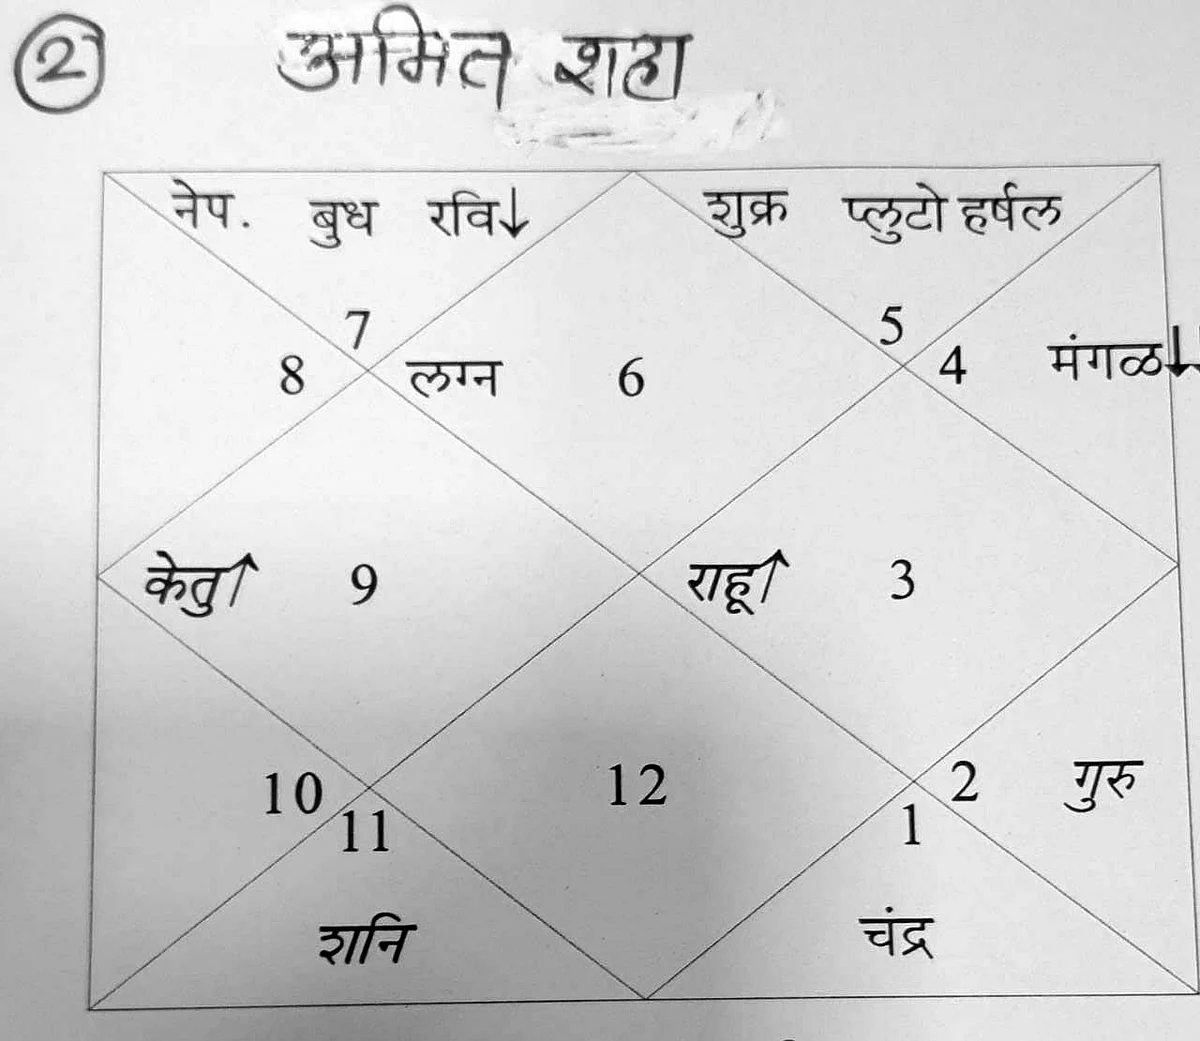 2 अमित शहा
नेप. बुध रवि↓ शुक्र प्लुटो हर्षल
7 5
8 लग्न 6 4 मंगळ↓
केतु↑ 9 राहू↑ 3
10 12 2 गुरु
11 1
शनि चंद्र